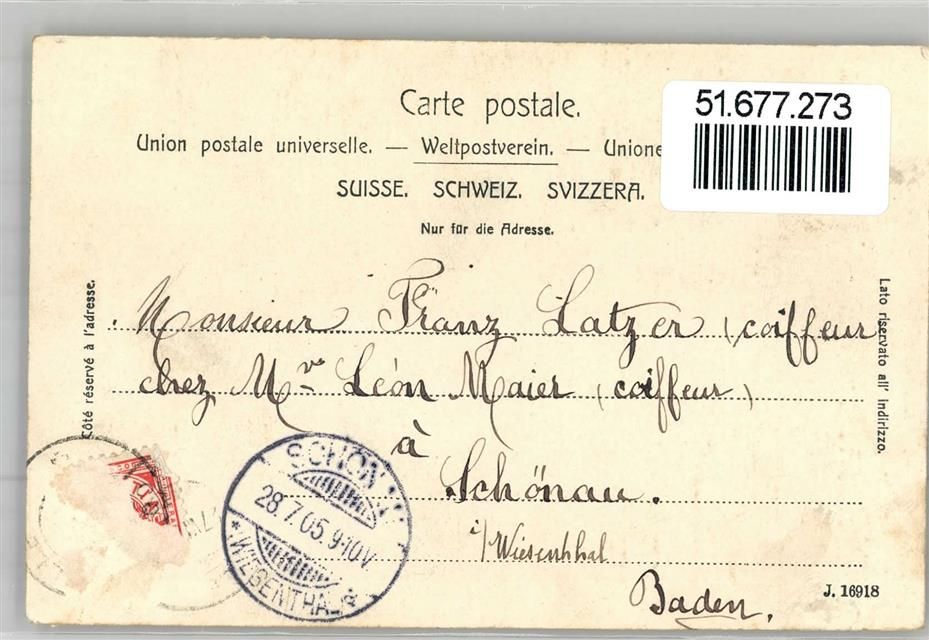 Carte postale.
51.677.273
Union postale universelle. — Weltpostverein. — Unione
SUISSE. SCHWEIZ. SVIZZERA.
Nur für die Adresse.
Côté réservé à l'adresse.
Lato riservato all' indirizzo.
Monsieur Franz Latzer (coiffeur
chez Mr Léon Maier (coiffeur)
à
Schönau.
i/Wiesenthal
Baden.
SCHÖN
28.7.05.9-10V.
* WIESENTHAL *
J. 16918